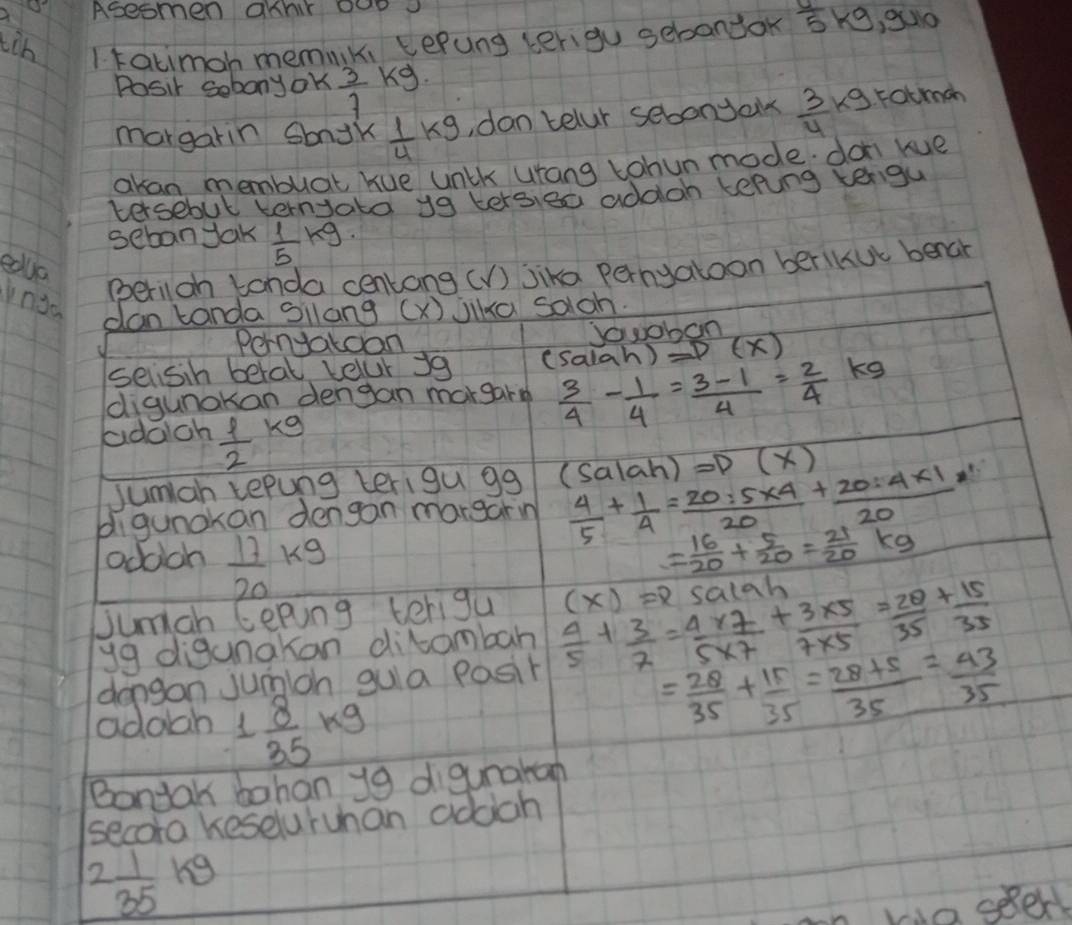 Asesmen akhir bab 3
1. Fatimah memiliki tepung terigu sebanyak 4/5 kg, gula
Pasir sebanyak 3/7 kg.
margarin sbnyk 1/4 kg, dan telur sebanyak 3/4 kg. Fatimah
akan membuat kue untk ulang tahun made. dari kue
tersebut ternyata yg tersisa adalah tepung terigu
sebanyak 1/5 kg.
Berilah tanda centang (√) jika Pernyataan berikut benar
dan tanda silang (x) jika salah.
Pernyataan | Jawaban
selisih berat telur yg
digunakan dengan margarin
adalah 1/2 kg
(salah) => (x)
3/4 - 1/4 = 3-1/4 = 2/4 kg
Jumlah tepung terigu yg
digunakan dengan margarin
adalah 17/20 kg
(salah) => (x)
4/5 + 1/4 = 20:5x4/20 + 20:4x1/20
= 16/20 + 5/20 = 21/20 kg
Jumlah tepung terigu
yg digunakan ditambah
dengan jumlah gula Pasir
adalah 1 8/35 kg
(x) => salah
4/5 + 3/7 = 4x7/5x7 + 3x5/7x5 = 28/35 + 15/35
= 28/35 + 15/35 = 28+5/35 = 43/35
Banyak bahan yg digunakan
secara keseluruhan adalah
2 1/35 kg